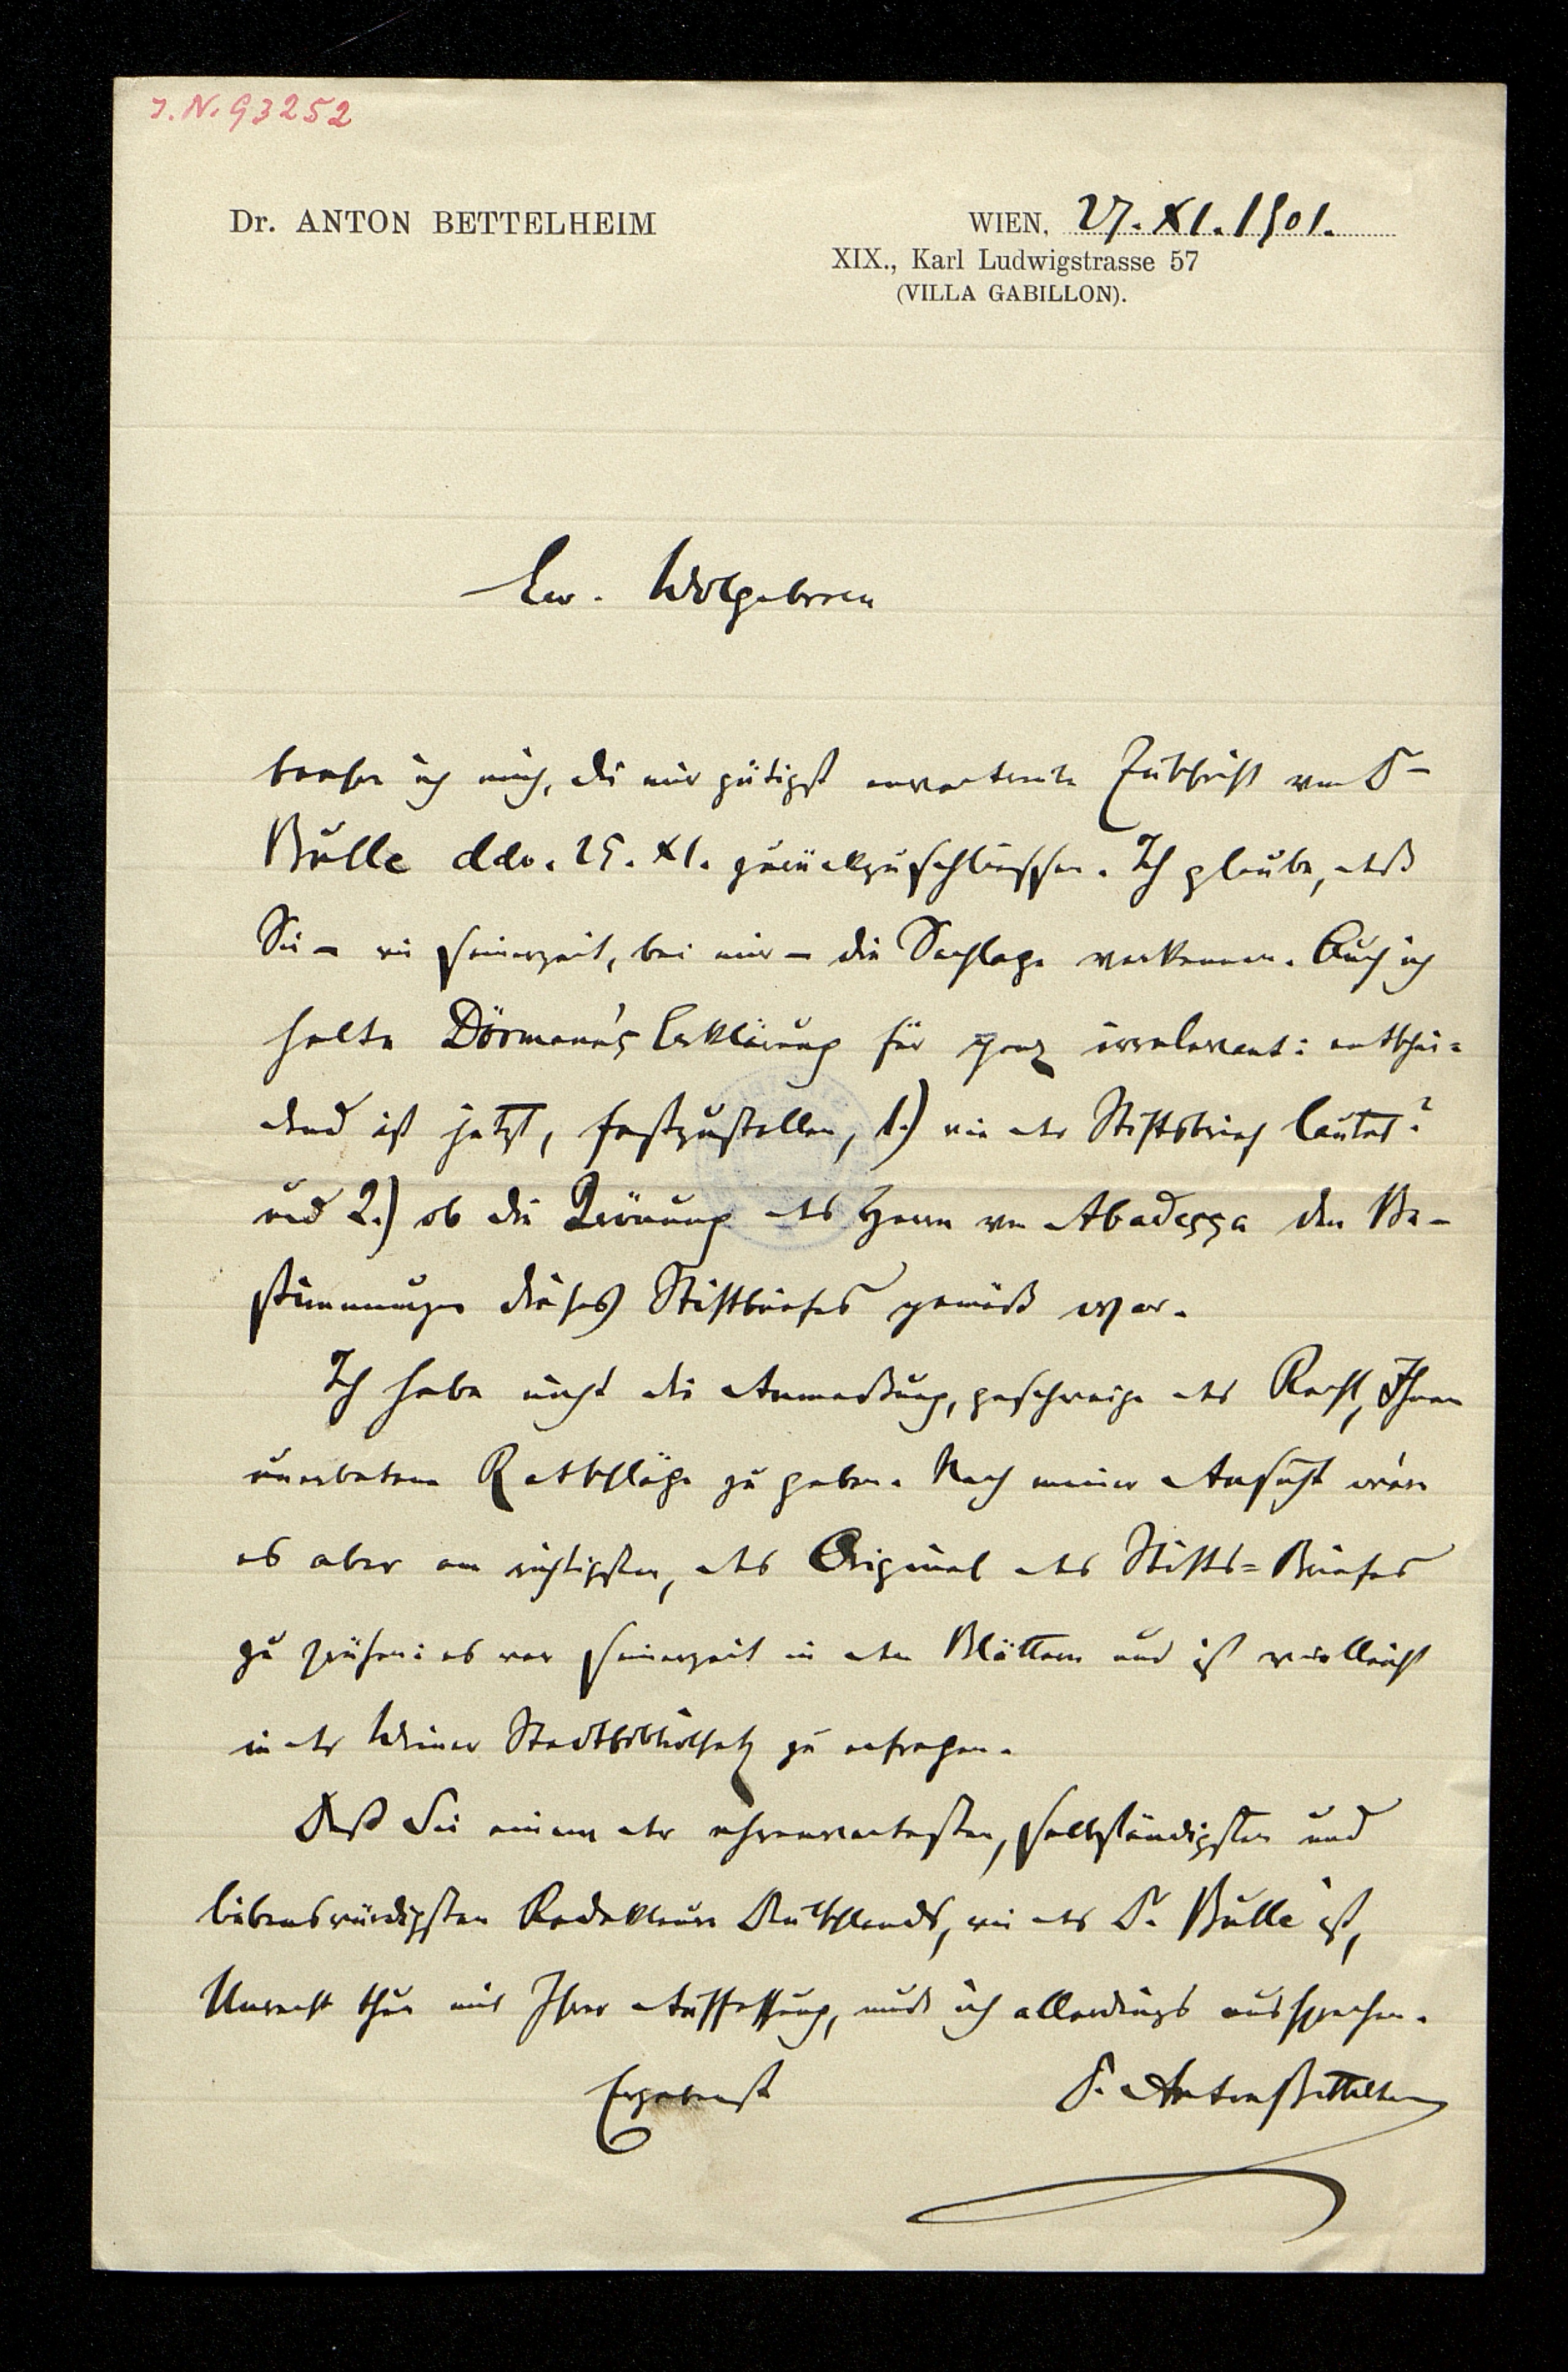 I. N. 93252
Dr. ANTON BETTELHEIM
WIEN, 27. XI. 1901.
XIX., Karl Ludwigstrasse 57
(VILLA GABILLON).
Ew. Wolgeboren
beehre ich mich, die mir gütigst anvertraute Zuschrift von Dr
Bulle ddo. 25. XI. zurückzuschliessen. Ich glaube, daß
Sie – wie seinerzeit, bei mir – die Sachlage verkennen. Auch ich
halte Dörmann's Erklärung für ganz irrelevant: entschei=
dend ist jetzt, festzustellen, 1.) wie der Stiftsbrief lautet?
und 2.) ob die Krönung des Herrn von Abadessa den Be-
stimmungen dieses Stiftbriefes gemäß war.
Ich habe nicht die Anmaßung, geschweige das Recht, Ihnen
unerbetene Rathschläge zu geben. Nach meiner Ansicht wäre
es aber am richtigsten, das Original des Stifts=Briefes
zu prüfen: es war seinerzeit in den Blättern und ist vielleicht
in der Wiener Stadtbibliothek zu erfragen.
Daß Sie einem der ehrenwertesten, selbständigsten und
liebenswürdigsten Redakteure Deutschlands, wie das Dr. Bulle ist,
Unrecht thun mit Ihrer Auffassung, muß ich allerdings aussprechen.
Ergebenst
Dr. Anton Bettelheim